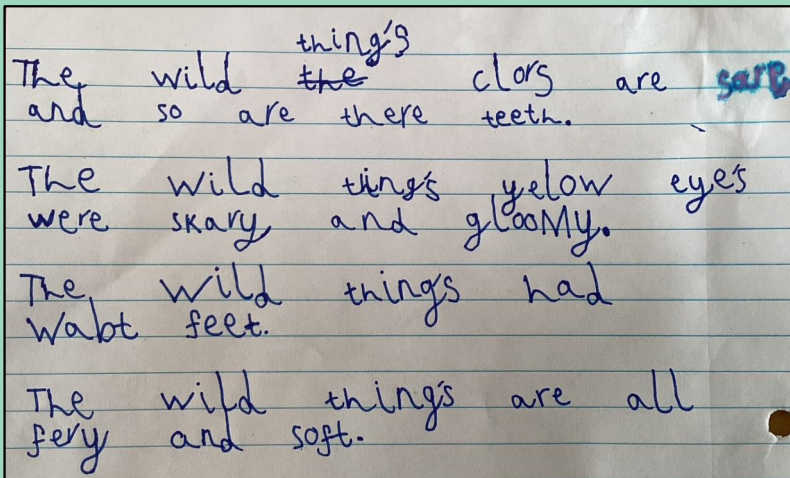 thing's
The wild the clors are
and so are there teeth.
The wild ting's yelow eye's
were skary and glooMy.
The wild thing's had
wabt feet.
The wild thing's are all
fery and soft.